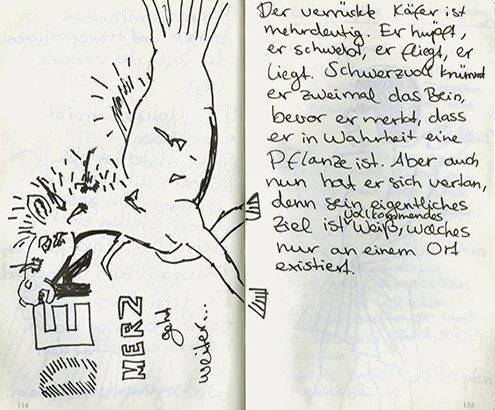 DER
MERZ
geht
weiter...
154
Der verrückte Käfer ist
mehrdeutig. Er hüpft,
er schwebt, er fliegt, er
liegt. Schmerzvoll krümmt
er zweimal das Bein,
bevor er merkt, dass
er in Wahrheit eine
Pflanze ist. Aber auch
nun hat er sich vertan,
denn sein eigentliches
Ziel ist vollkommendes Weiß, welches
nur an einem Ort
existiert.
155